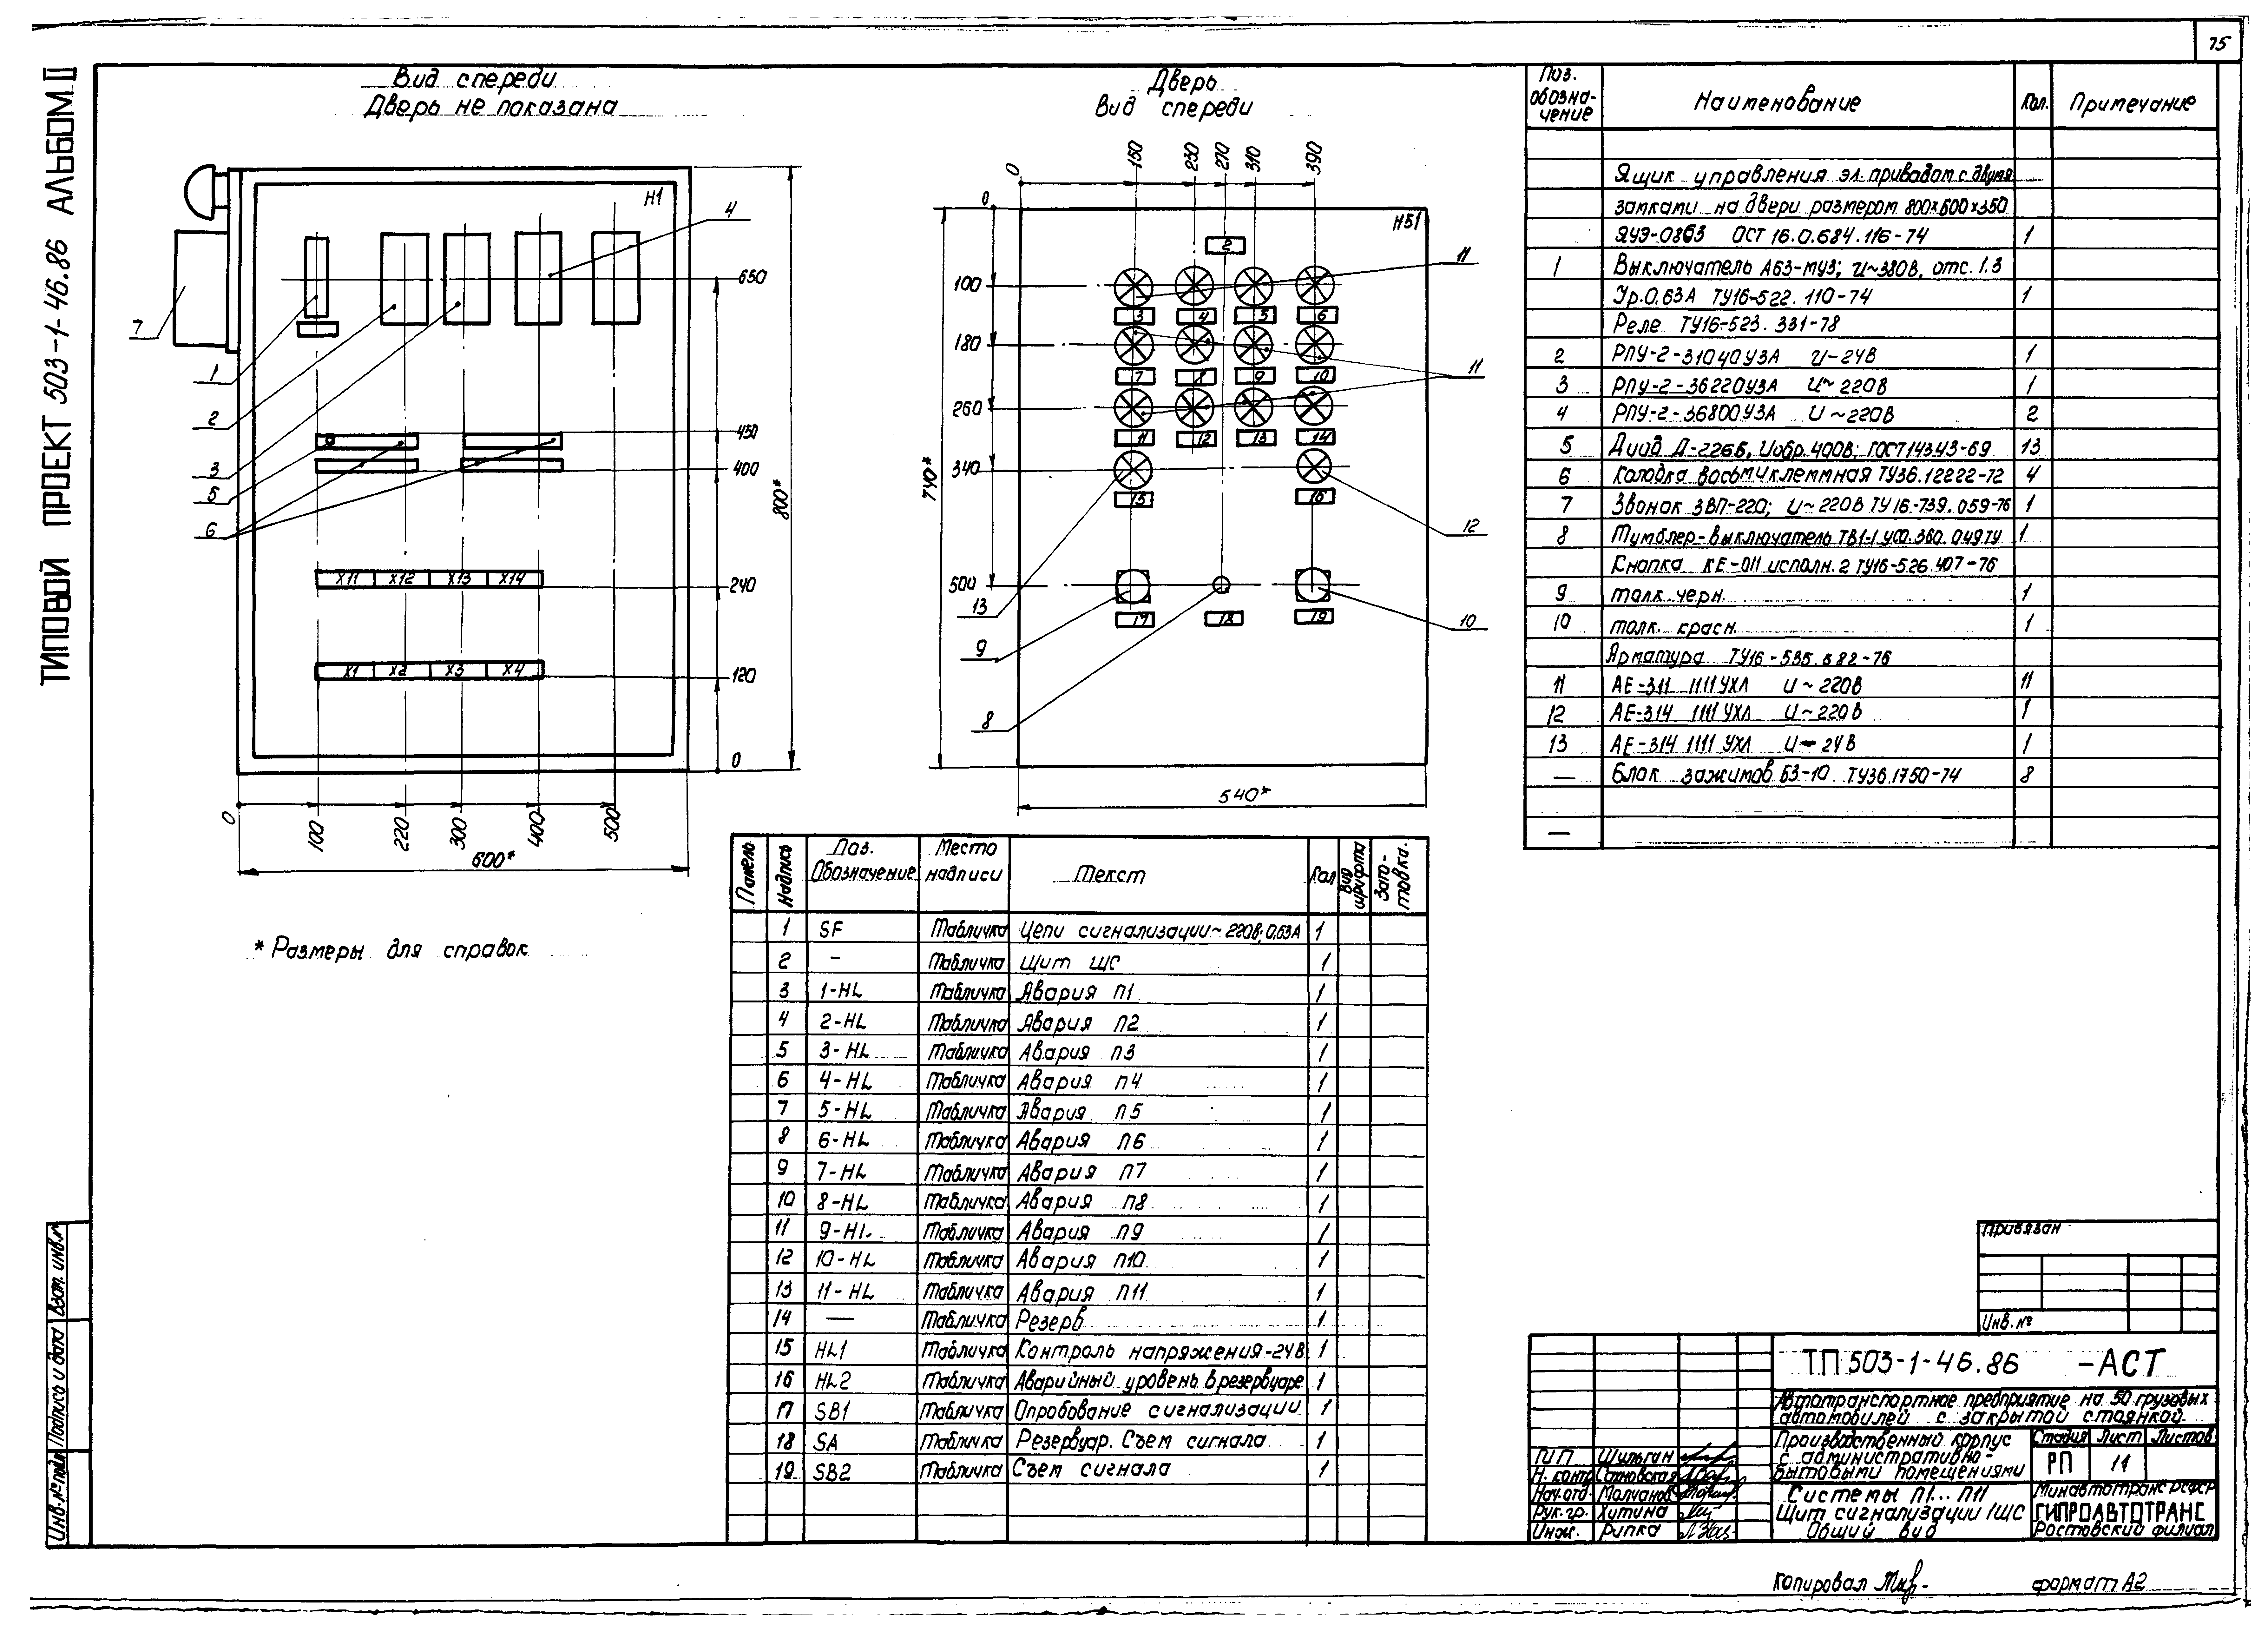 75
ТИПОВОЙ ПРОЕКТ 503-1-46.86 АЛЬБОМ II
Вид спереди
Дверь не показана
Н1
4
7
1
2
3
5
6
650
450
400
240
120
0
800*
X11 X12 X13 X14
X1 X2 X3 X4
0 100 220 300 400 500
600*
* Размеры для справок
Дверь
Вид спереди
0 150 230 270 310 390
0
Н51
2
11
100
3 4 5 6
180
7 8 9 10
11
260
11 12 13 14
340
15 16
12
500
13
17 18 19
9
10
8
740*
540*
Поз. обозна-чение Наименование Кол. Примечание
Ящик управления эл. приводом с двумя
замками на двери размером 800×600×350
ЯУЭ-0863 ОСТ 16.0.684.116-74 1
1 Выключатель А63-МУ3; U~380В, отс. 1.3
Ур.0,63А ТУ16-522.110-74 1
Реле ТУ16-523.331-78
2 РПУ-2-31040У3А U-24В 1
3 РПУ-2-36220У3А U~220В 1
4 РПУ-2-36800У3А U~220В 2
5 Диод Д-226Б, Uобр. 400В; ГОСТ14343-69 13
6 Колодка восьмиклеммная ТУ36.12222-72 4
7 Звонок ЗВП-220; U~220В ТУ16-739.059-76 1
8 Тумблер-выключатель ТВ1-1 УСО.360.049ТУ 1
Кнопка КЕ-011 исполн. 2 ТУ16-526.407-76
9 толк. черн. 1
10 толк. красн. 1
Арматура ТУ16-535.582-76
11 АЕ-311 1111УХЛ U~220В 11
12 АЕ-314 1111УХЛ U~220В 1
13 АЕ-314 1111УХЛ U-24В 1
— Блок зажимов БЗ-10 ТУ36.1750-74 8
—
Панель Надпись Поз. Обозначение Место надписи Текст Кол Вид шрифта Заго-товка.
1 SF Табличка Цепи сигнализации~220В; 0,63А 1
2 - Табличка Щит ЩС 1
3 1-HL Табличка Авария П1 1
4 2-HL Табличка Авария П2 1
5 3-HL Табличка Авария П3 1
6 4-HL Табличка Авария П4 1
7 5-HL Табличка Авария П5 1
8 6-HL Табличка Авария П6 1
9 7-HL Табличка Авария П7 1
10 8-HL Табличка Авария П8 1
11 9-HL Табличка Авария П9 1
12 10-HL Табличка Авария П10 1
13 11-HL Табличка Авария П11 1
14 — Табличка Резерв 1
15 HL1 Табличка Контроль напряжения-24В 1
16 HL2 Табличка Аварийный уровень в резервуаре 1
17 SB1 Табличка Опробование сигнализации 1
18 SA Табличка Резервуар. Съем сигнала 1
19 SB2 Табличка Съем сигнала 1
Привязан
Инв. №
ТП 503-1-46.86 -АСТ
Автотранспортное предприятие на 50 грузовых
автомобилей с закрытой стоянкой
Производственный корпус
с административно-
бытовыми помещениями
Стадия Лист Листов
РП 11
Системы П1...П11
Щит сигнализации 1ЩС
Общий вид
Минавтотранс РСФСР
ГИПРОАВТОТРАНС
Ростовский филиал
ГИП Шульган
Н. контр. Сосновская
Нач. отд. Молчанов
Рук. гр. Хитина
Инж. Рипка
Инв. № подл Подпись и дата Взам. инв. №
Копировал
формат А2